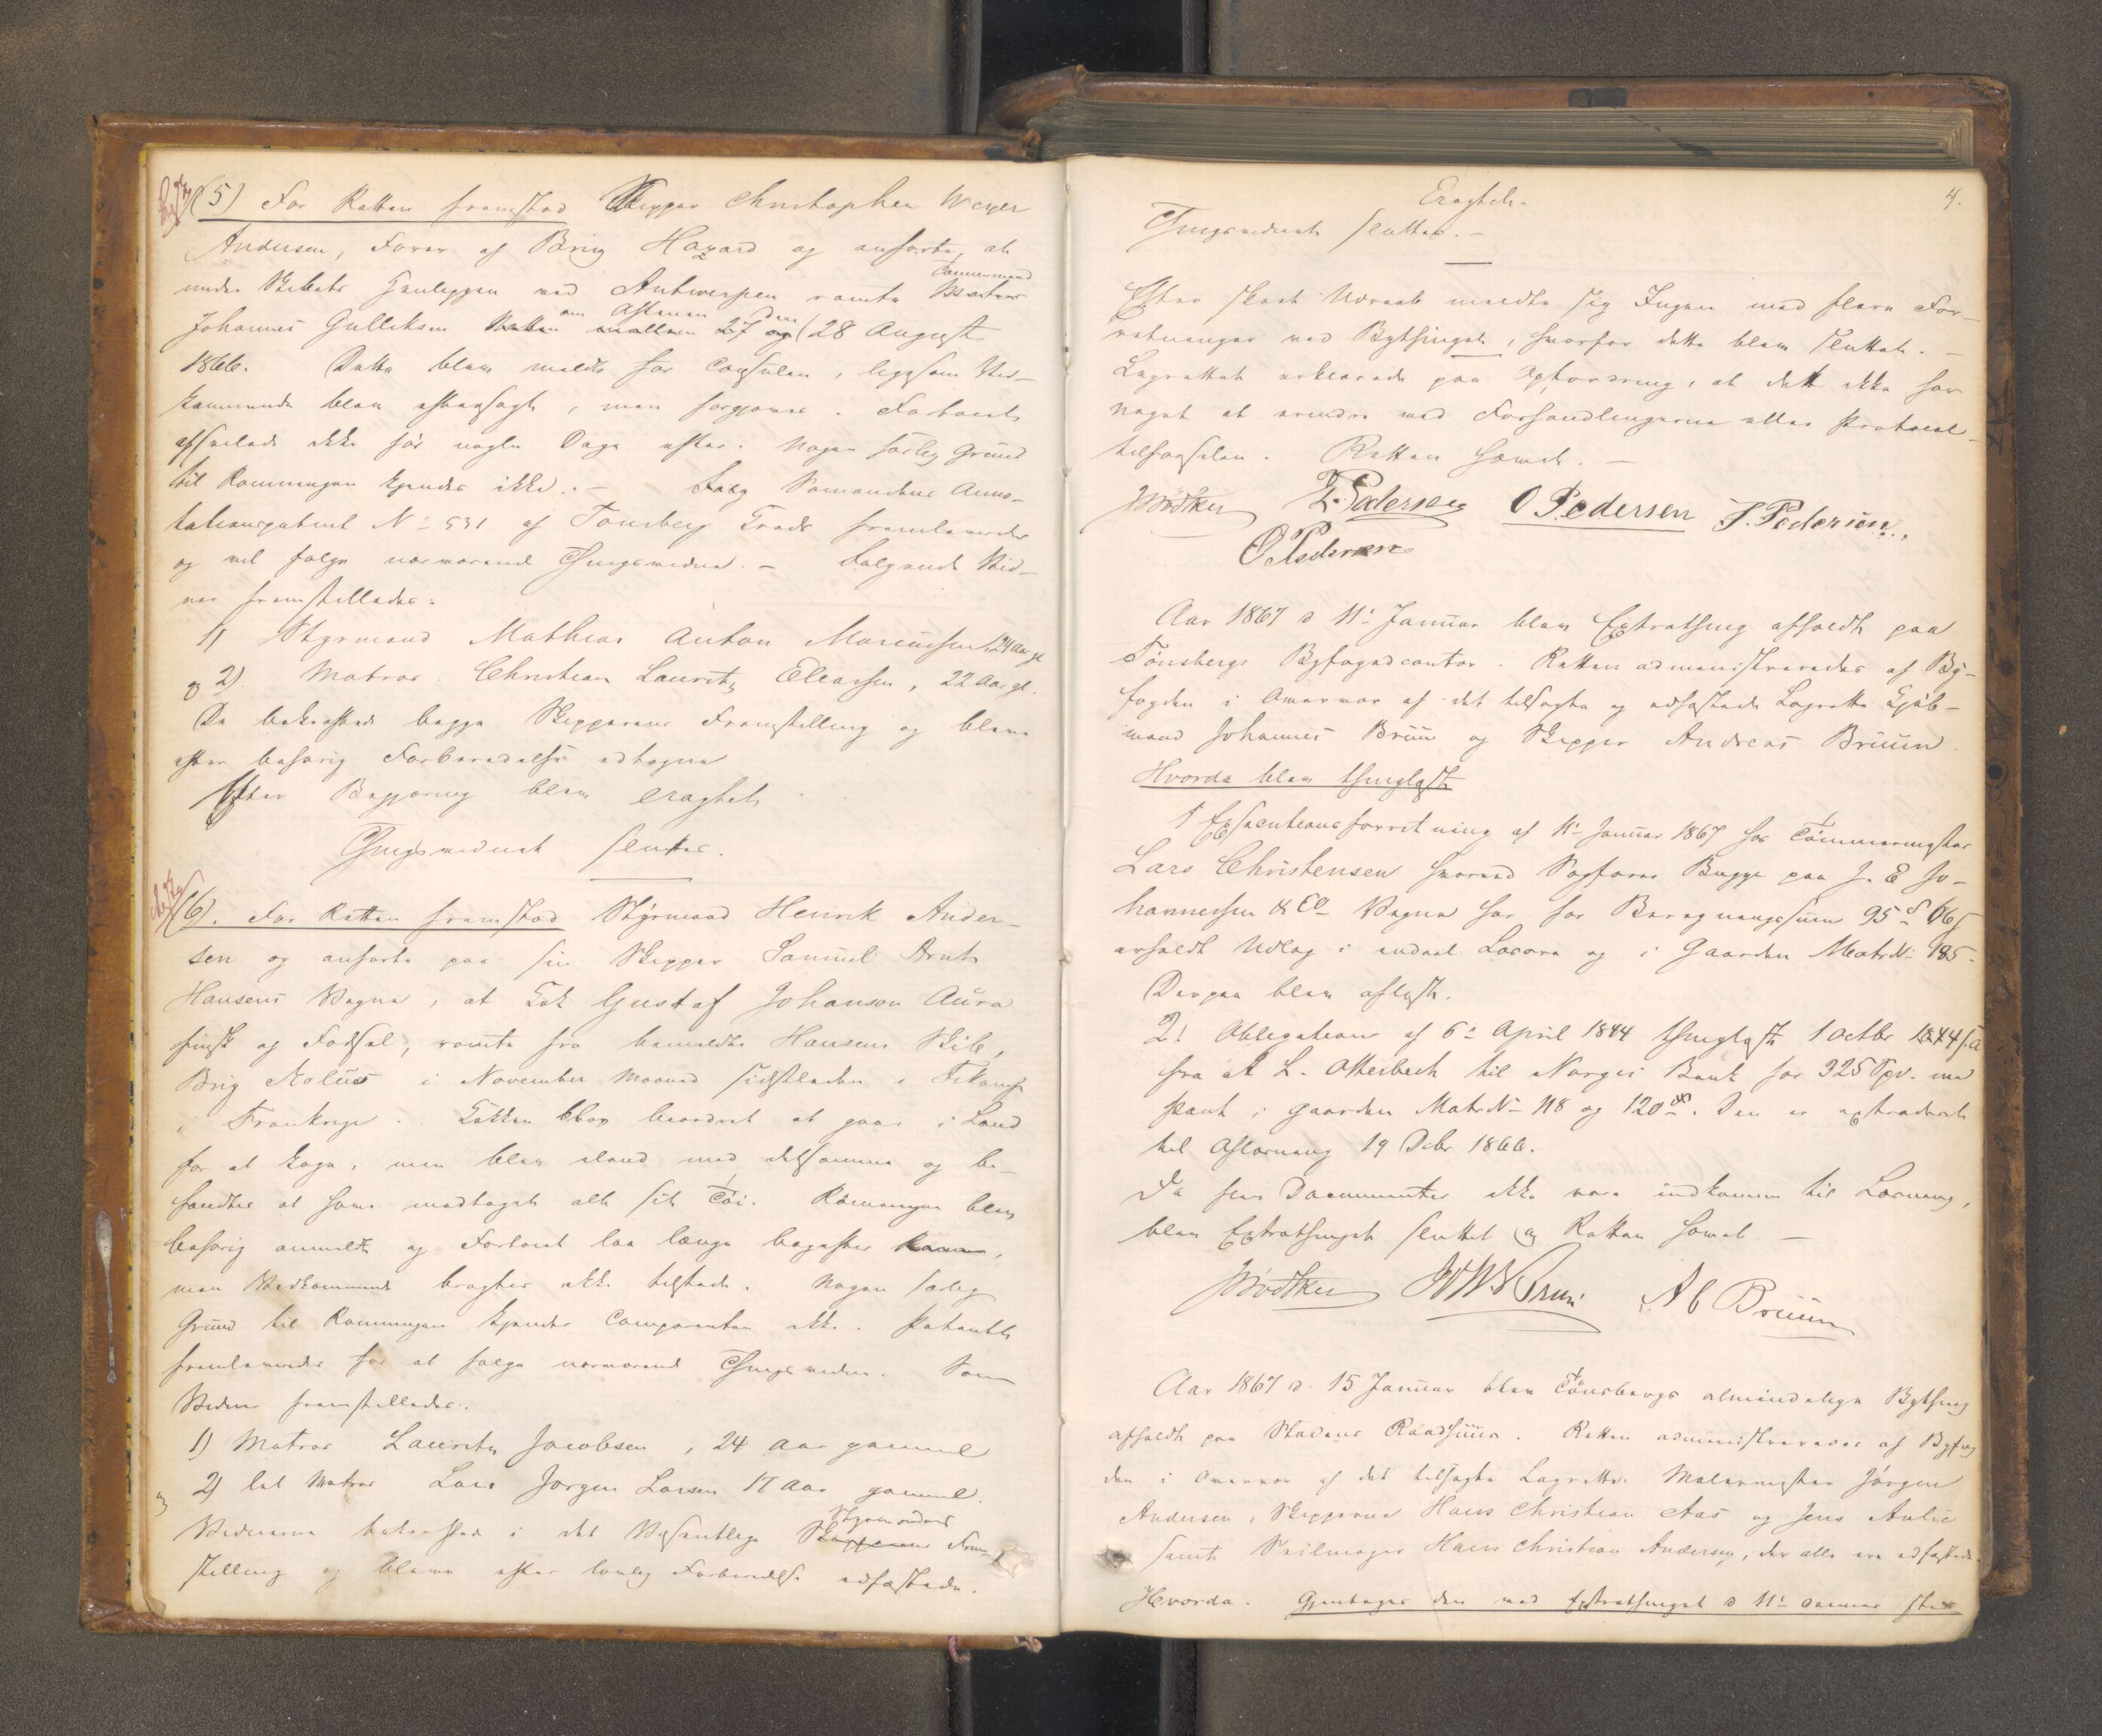 (5) For Retten fremstod Skipper Christopher Weyer
Andersen, Fører af Brig Hazard og anførte, at
under Skibets Henliggen ved Antwerpen rømte Tømmermand
Johannes Gulliksen om Aftenen den 28 August
1866. Dette blev meldt for Consulen, ligesom Ved-
kommende blev eftersøgt, men forgjæves. Fartøiet
afseilede ikke før nogle Dage efter. Nogen særlig Grund
til Rømningen kjendes ikke. – Søemandens Anno-
tationspatent No 531 af Tønsberg fremlagdes
og vil følge nærværende Thingsvidne. – Følgende Vid-
ner fremstilledes:
1) Styrmand Mathias Anton Marcussen, 24 Aar gl
og 2) Matros Christian Lauritz Eliassen, 22 Aar gl.
De bekræftede begge Skipperens Fremstilling og bleve
efter behørig Forberedelse edtagne
Efter Begjæring blev eragtet
Thingsvidnet sluttes.
(6). For Retten fremstod Styrmand Henrik Ander-
sen og anførte paa sin Skipper Samuel Arnt
Hansens Vegne, at Kok Gustaf Johanson Aura
finsk af Fødsel, rømte fra bemeldte Hansens Skib,
Brig Æolus i November Maaned sidstleden i Fekamp
i Frankrige. Kokken blev beordret at gaae i Land
for at koge, men blev iland med detsamme og be-
fandtes at have medtaget alt sit Tøi. Rømningen blev
behørig anmeldt og Fartøiet laa længe bagefter,
men Vedkommende bragtes ikke tilstede. Nogen særlig
Grund til Rømningen kjender Comparenten ikke. Patentet
fremlagdes for at følge nærværende Thingsvidne. Som
Vidner fremstilledes:
1) Matros Lauritz Jacobsen, 24 Aar gammel
og 2) Let Matros Lars Jørgen Larsen 17 Aar gammel.
Vidnerne bekræftede i det Væsentlige Styrmandens Frem-
stilling og bleve efter lovlig Forberedelse edfæstede.
4.
Eragtet.
Thingsvidnet sluttes. –
Efter skeet Udraab meldte sig Ingen med flere For-
retninger ved Bythinget, hvorfor dette blev sluttet. –
Lagrettet erklærede paa Opfordring, at det ikke har
noget at erindre ved Forhandlingerne eller Protocol-
tilførselen. Retten hævet. –
JBødtker E. Pedersen O Pedersen S. Pedersen.
O Pedersen
Aar 1867 d 11te Januar blev Extrathing afholdt paa
Tønsbergs Byfogedcontor. Retten administreredes af By-
fogden i Overvær af det tilsagte og edfæstede Lagrette Kjøb-
mand Johannes Bruun og Skipper Andreas Bruun.
Hvorda blev thinglyst
1 Executionsforretning af 11te Januar 1867 hos Tømmermester
Lars Christensen hvorved Sagfører Bugge paa J. E Jo-
hannessen & Co Vegne har for Beregningssum 95 66
erholdt Udlæg i endeel Løsøre og i Gaarden Matr No 185.
Derpaa blev aflyst.
2. Obligation af 6te April 1844 thinglyst 1 Octbr 1844
fra A L. Otterbech til Norges Bank for 325 Spd. med
Pant i Gaarden Matr No 118 og 120. Den er extraderet
til Aflæsning 19 Dcbr 1866.
Da flere Documenter ikke vare indkomne til Læsning,
blev Extrathinget sluttet og Retten hævet. –
JBødtker A C Bruun
Aar 1867 d 15 Januar blev Tønsbergs almindelige Bything
afholdt paa Stadens Raadhuus. Retten administreredes af Byfog
den i Overvær af det tilsagte Lagrette Malermester Jørgen
Andersen, Skipperne Hans Christian Aas og Jens Aulie
samt Seilmager Hans Christian Andersen, der alle ere edfæstede.
Hvorda. Gjentages den ved Extrathinget d 11te Januar